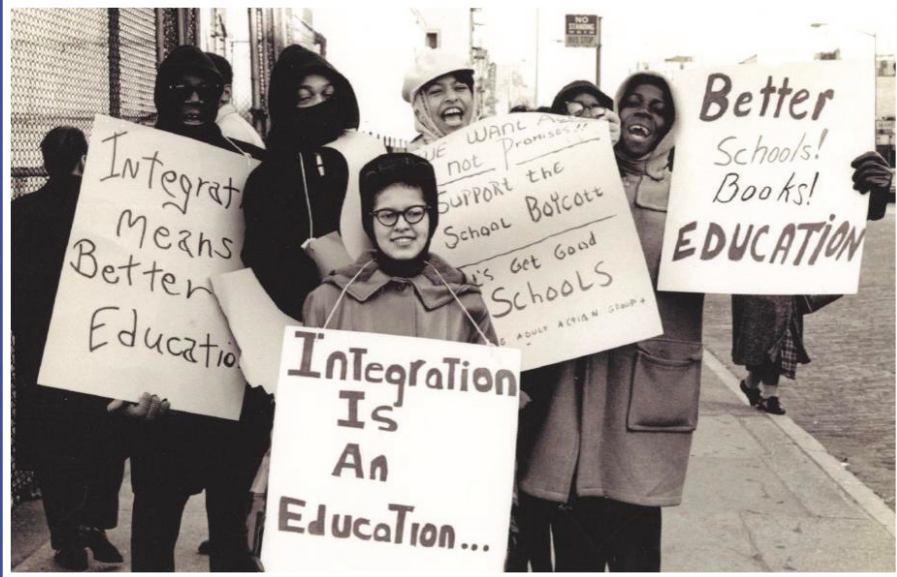 NO
STANDING
BUS STOP
Integrat
Means
Better
Educatio
WE WANT
not Promises!!
SUPPORT the
School Boycott
's Get Good
Schools
ADULT ACTION GROUP
Better
Schools!
Books!
EDUCATION
Integration
Is
An
Education...